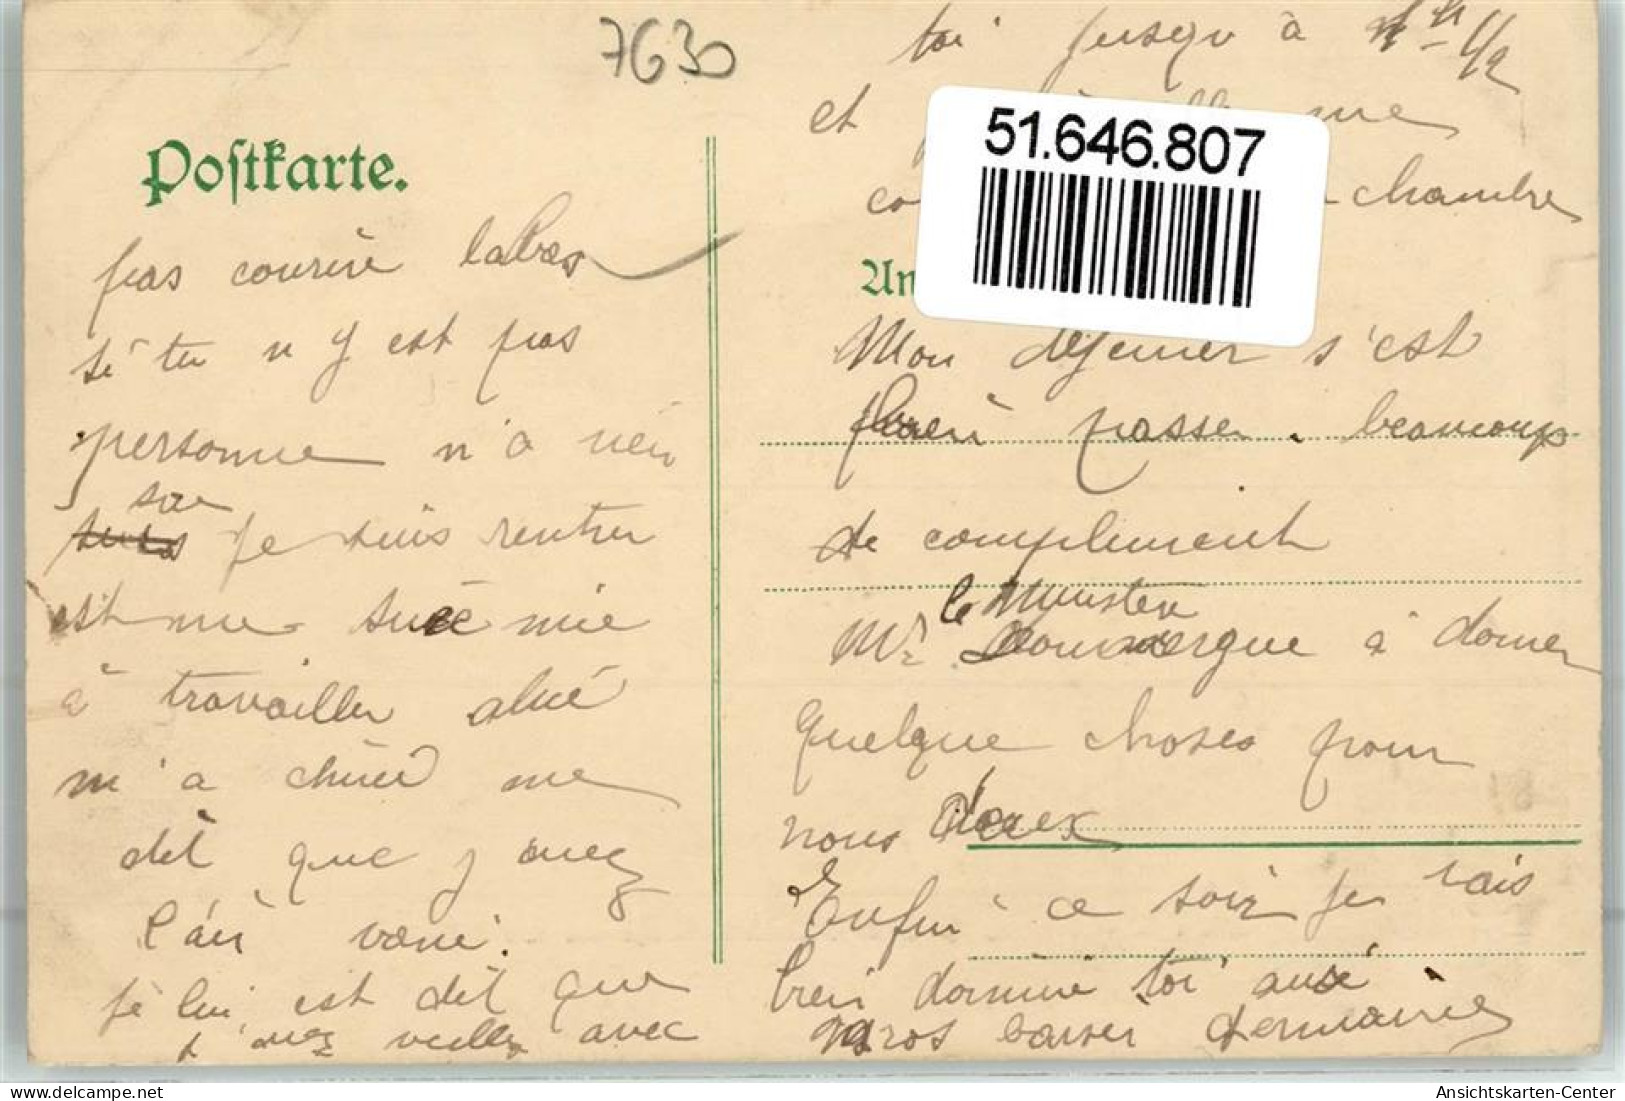 7630
Postkarte.
pas courire labas
si tu n y est pas
personne n'a rien
sue
suis je suis rentrer
est me suie mie
à travailler alué
m'a chuid me
dit que j avez
l'air vanné.
je lui est dit que
j avez veillez avec
toi jusqu à 1/2
et me
co chambre
51.646.807
An
Mon déjeuner s'est
passer. beaucoup
de compliment
le Ministre
Mr Doumergue à donner
quelque choses pour
nous deux
Enfin ce soir je vais
bien dormire toi ausi
gros baiser Germaine
delcampe.net
Ansichtskarten-Center